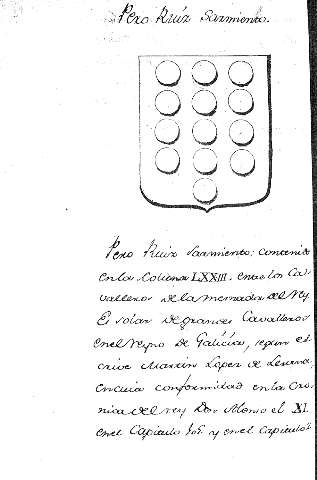 Pero Ruiz Sarmiento.
Pero Ruiz Sarmiento: contenido
en la Coluna LXXIII. entre los Ca-
valleros de la mesnada del rey
Es solar de grandes Cavalleros
en el reyno de Galicia, segun es-
crive Martin Lopez de Lezana,
en cuia conformidad en la Cro-
nica del rey Don Alonso el XI
en el Capitulo y en el Capitulo